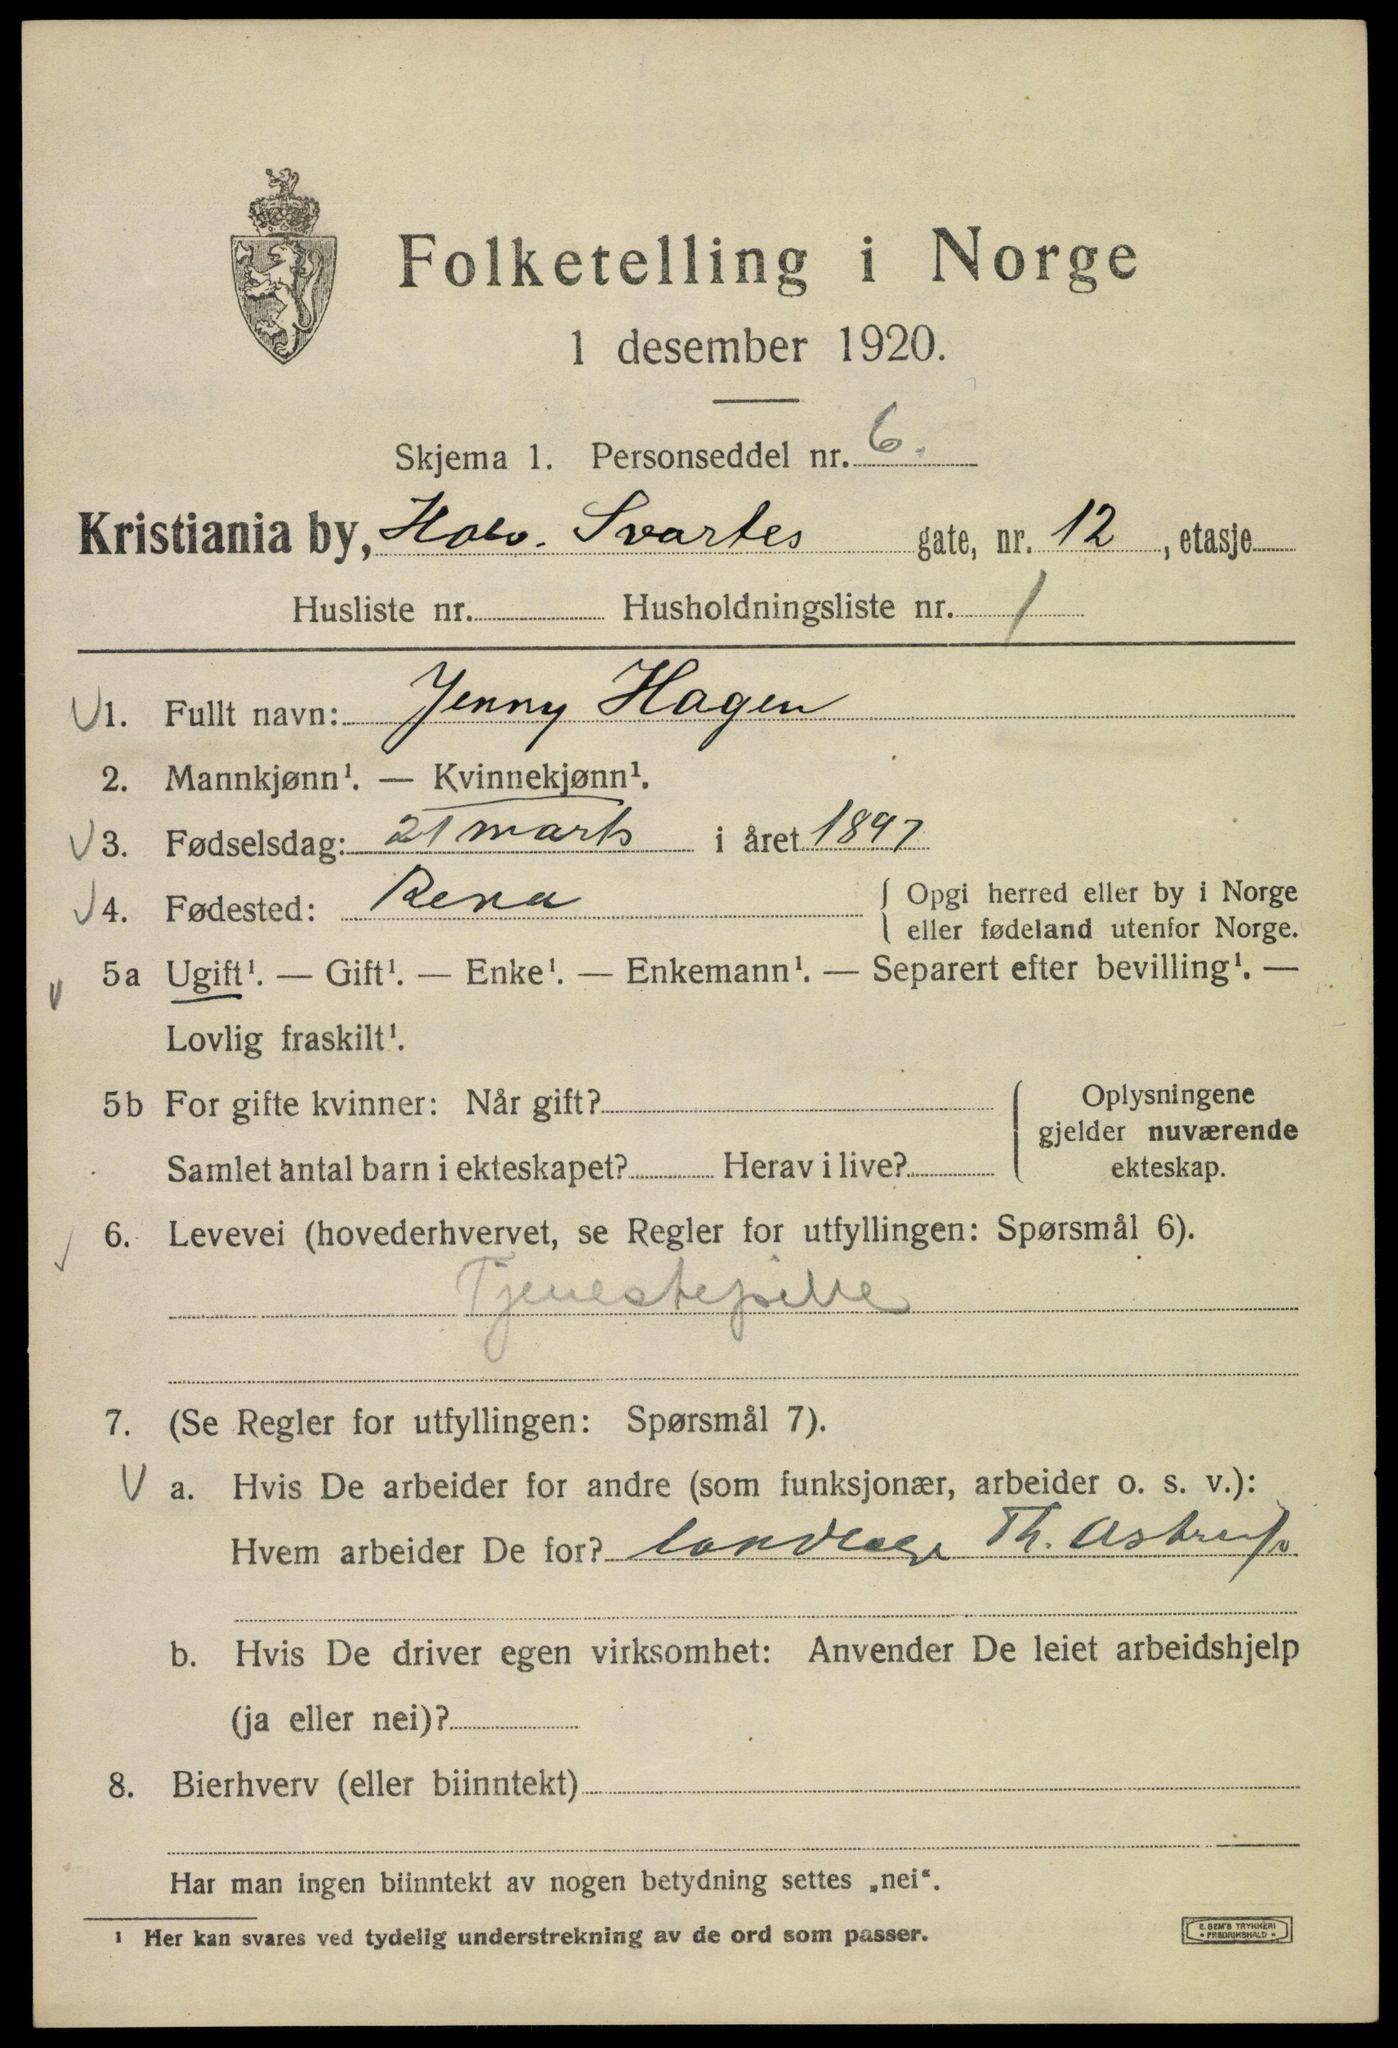 Folketelling i Norge
1 desember 1920.
Skjema 1. Personseddel nr. 6.
Kristiania by, Halv. Svartes gate, nr. 12, etasje
Husliste nr. Husholdningsliste nr. 1
1. Fullt navn: Jenny Hagen
2. Mannkjønn¹. — Kvinnekjønn¹.
3. Fødselsdag: 21 marts i året 1897
4. Fødested: Rena { Opgi herred eller by i Norge
eller fødeland utenfor Norge.
5a Ugift¹. — Gift¹. — Enke¹. — Enkemann¹. — Separert efter bevilling¹. —
Lovlig fraskilt¹.
5b For gifte kvinner: Når gift?
Samlet antal barn i ekteskapet? Herav i live?
Oplysningene
gjelder nuværende
ekteskap.
6. Levevei (hovederhvervet, se Regler for utfyllingen: Spørsmål 6).
Tjenestepike
7. (Se Regler for utfyllingen: Spørsmål 7).
a. Hvis De arbeider for andre (som funksjonær, arbeider o. s. v.):
Hvem arbeider De for? Th. Astrup
b. Hvis De driver egen virksomhet: Anvender De leiet arbeidshjelp
(ja eller nei)?
8. Bierhverv (eller biinntekt)
Har man ingen biinntekt av nogen betydning settes „nei“.
¹ Her kan svares ved tydelig understrekning av de ord som passer.
E. SEM'S TRYKKERI
• FREDRIKSHALD •